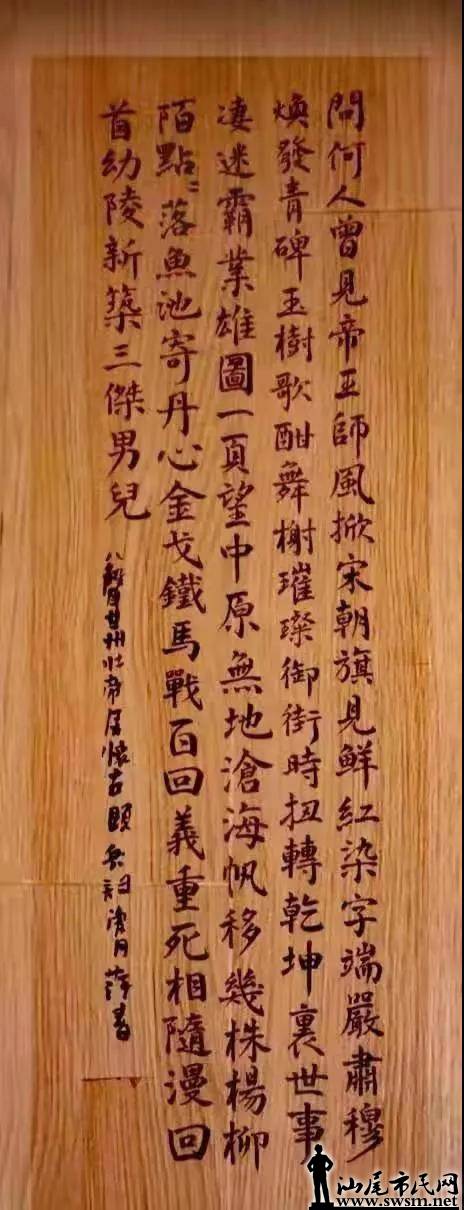 問何人曾見帝王師風掀宋朝旗見鮮紅染字端嚴肅穆
煥發青碑玉樹歌酣舞榭璀璨御街時扭轉乾坤裏世事
淒迷霸業雄圖一頁望中原無地滄海帆移幾株楊柳
陌點〻落魚池寄丹心金戈鐵馬戰百回義重死相隨漫回
首幼陵新築三傑男兒
八聲甘州壯帝居懷古
汕尾市民网
www.swsm.net